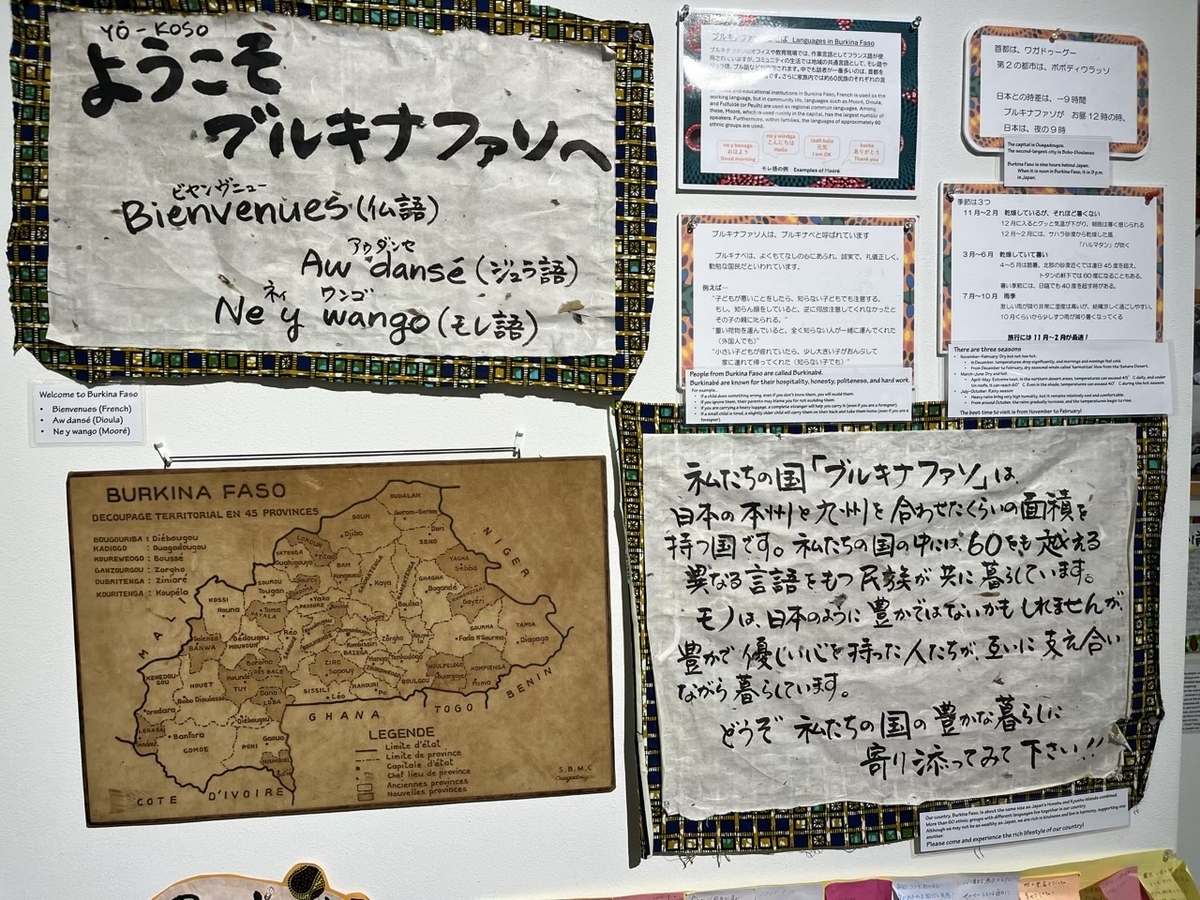 YŌ-KOSO
ようこそ
ブルキナファソへ
ビヤンヴニュー
Bienvenues (仏語)
アウ ダンセ
Aw dansé (ジュラ語)
ネィ ワンゴ
Ne y wango (モレ語)
Welcome to Burkina Faso
• Bienvenues (French)
• Aw dansé (Dioula)
• Ne y wango (Mooré)
Languages in Burkina Faso
working language, but in community life, languages such as Mooré, Dioula,
and Fulfuldé (or Peulh) are used as regional common languages. Among
these, Mooré, which is used mainly in the capital, has the largest number of
speakers. Furthermore, within families, the languages of approximately 60
ethnic groups are used.
ne y beoogo
おはよう
Good morning
ne y windga
こんにちは
Hello
laafi kalle
元気
I am OK
barka
ありがとう
Thank you
モレ語の例 Examples of Mooré
首都は、ワガドゥーグー
第2の都市は、ボボディウラッソ
日本との時差は、−9時間
ブルキナファソが お昼12時の時、
日本は、夜の9時
The capital is Ouagadougou.
The second-largest city is Bobo-Dioulasso.
Burkina Faso is nine hours behind Japan.
When it is noon in Burkina Faso, it is 9 p.m.
in Japan.
ブルキナファソ人は、ブルキナベと呼ばれています
ブルキナベは、よくもてなしの心にあふれ、誠実で、礼儀正しく、
勤勉な国民だといわれています。
例えば…
"子どもが悪いことをしたら、知らない子どもでも注意する。
もし、知らん顔をしていると、逆に何故注意してくれなかったと
その子の親に叱られる。"
"重い荷物を運んでいると、全く知らない人が一緒に運んでくれた
(外国人でも)
"小さい子どもが疲れていたら、少し大きい子がおんぶして
家に連れて帰ってくれた (知らない子でも)"
People from Burkina Faso are called Burkinabé.
Burkinabé are known for their hospitality, honesty, politeness, and hard work.
For example...
• If a child does something wrong, even if you don't know them, you will scold them.
• If you ignore them, their parents may blame you for not scolding them.
• If you are carrying a heavy luggage, a complete stranger will help you carry it (even if you are a foreigner).
• If a small child is tired, a slightly older child will carry them on their back and take them home (even if you are a
foreigner).
季節は3つ
11月〜2月 乾燥しているが、それほど暑くない
12月に入るとグッと気温が下がり、朝晩は寒く感じられる
12月〜2月には、サハラ砂漠から乾燥した風
「ハルマタン」が吹く
3月〜6月 乾燥していて暑い
4〜5月は酷暑。北部の砂漠近くでは連日45度を超え、
トタンの軒下では60度になることもある。
暑い季節には、日陰でも40度を超す時がある。
7月〜10月 雨季
激しい雨が降り非常に湿度は高いが、結構涼しく過ごしやすい。
10月くらいから少しずつ雨が減り暑くなってくる
旅行には11月〜2月が最適!
There are three seasons
• November-February: Dry but not too hot.
• March-June: Dry and hot
• July-October: Rainy season
The best time to visit is from November to February!
BURKINA FASO
DECOUPAGE TERRITORIAL EN 45 PROVINCES
BOUGOURIBA : Diébougou
KADIOGO : Ouagadougou
KOUREWEOGO : Boussé
GANZOURGOU : Zorgho
OUBRITENGA : Ziniaré
KOURITENGA : Koupéla
MALI
NIGER
BENIN
TOGO
GHANA
COTE D'IVOIRE
OUDALAN
Gorom-Gorom
SOUM
Djibo
Dori
SENO
YAGHA
Sebba
LOROUM
Titao
YATENGA
Ouahigouya
BAM
Kongoussi
Kaya
GNAGNA
Bogandé
Gayéri
SOUROU
Tougan
KOSSI
Nouna
Toma
Yako
Boulsa
GOURMA
Fada N'Gourma
TAPOA
Diapaga
Solenzo
BANWA
Dédougou
MOUHOUN
Réo
Zorgho
Kombissiri
BAZEGA
Manga
KENEDOU-
GOU
Orodara
HOUET
Bobo Dioulasso
Boromo
LES BALE
Houndé
TUY
Dano
IOBA
Diébougou
ZIRO
Sapouy
SISSILI
Léo
NAHOURI
Po
BOULGOU
KOULPELOGO
Ouargaye
KOMPIENGA
Pama
LERABA
Sindou
Banfora
COMOE
PONI
Gaoua
NOUMBIEL
LEGENDE
Limite d'état
Limite de province
Capitale d'état
Chef lieu de province
Anciennes provinces
Nouvelles provinces
S.B.M.C
Ouagadougou
私たちの国「ブルキナファソ」は、
日本の本州と九州を合わせたくらいの面積を
持つ国です。私たちの国の中には、60をも越える
異なる言語をもつ民族が共に暮らしています。
モノは、日本のように豊かではないかもしれませんが、
豊かで優しい心を持った人たちが、互いに支え合い
ながら暮らしています。
どうぞ 私たちの国の豊かな暮らしに
寄り添ってみて下さい!!
Our country, Burkina Faso, is about the same size as Japan's Honshu and Kyushu islands combined.
More than 60 ethnic groups with different languages live together in our country.
Although we may not be as wealthy as Japan, we are rich in kindness and live in harmony, supporting one
another.
Please come and experience the rich lifestyle of our country!